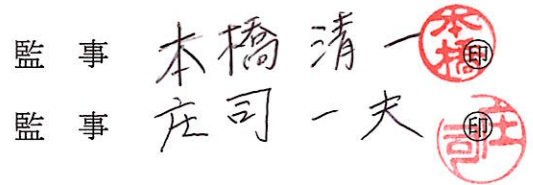 監 事 本橋 清一 ㊞ 本橋
監 事 庄司 一夫 ㊞ 庄司